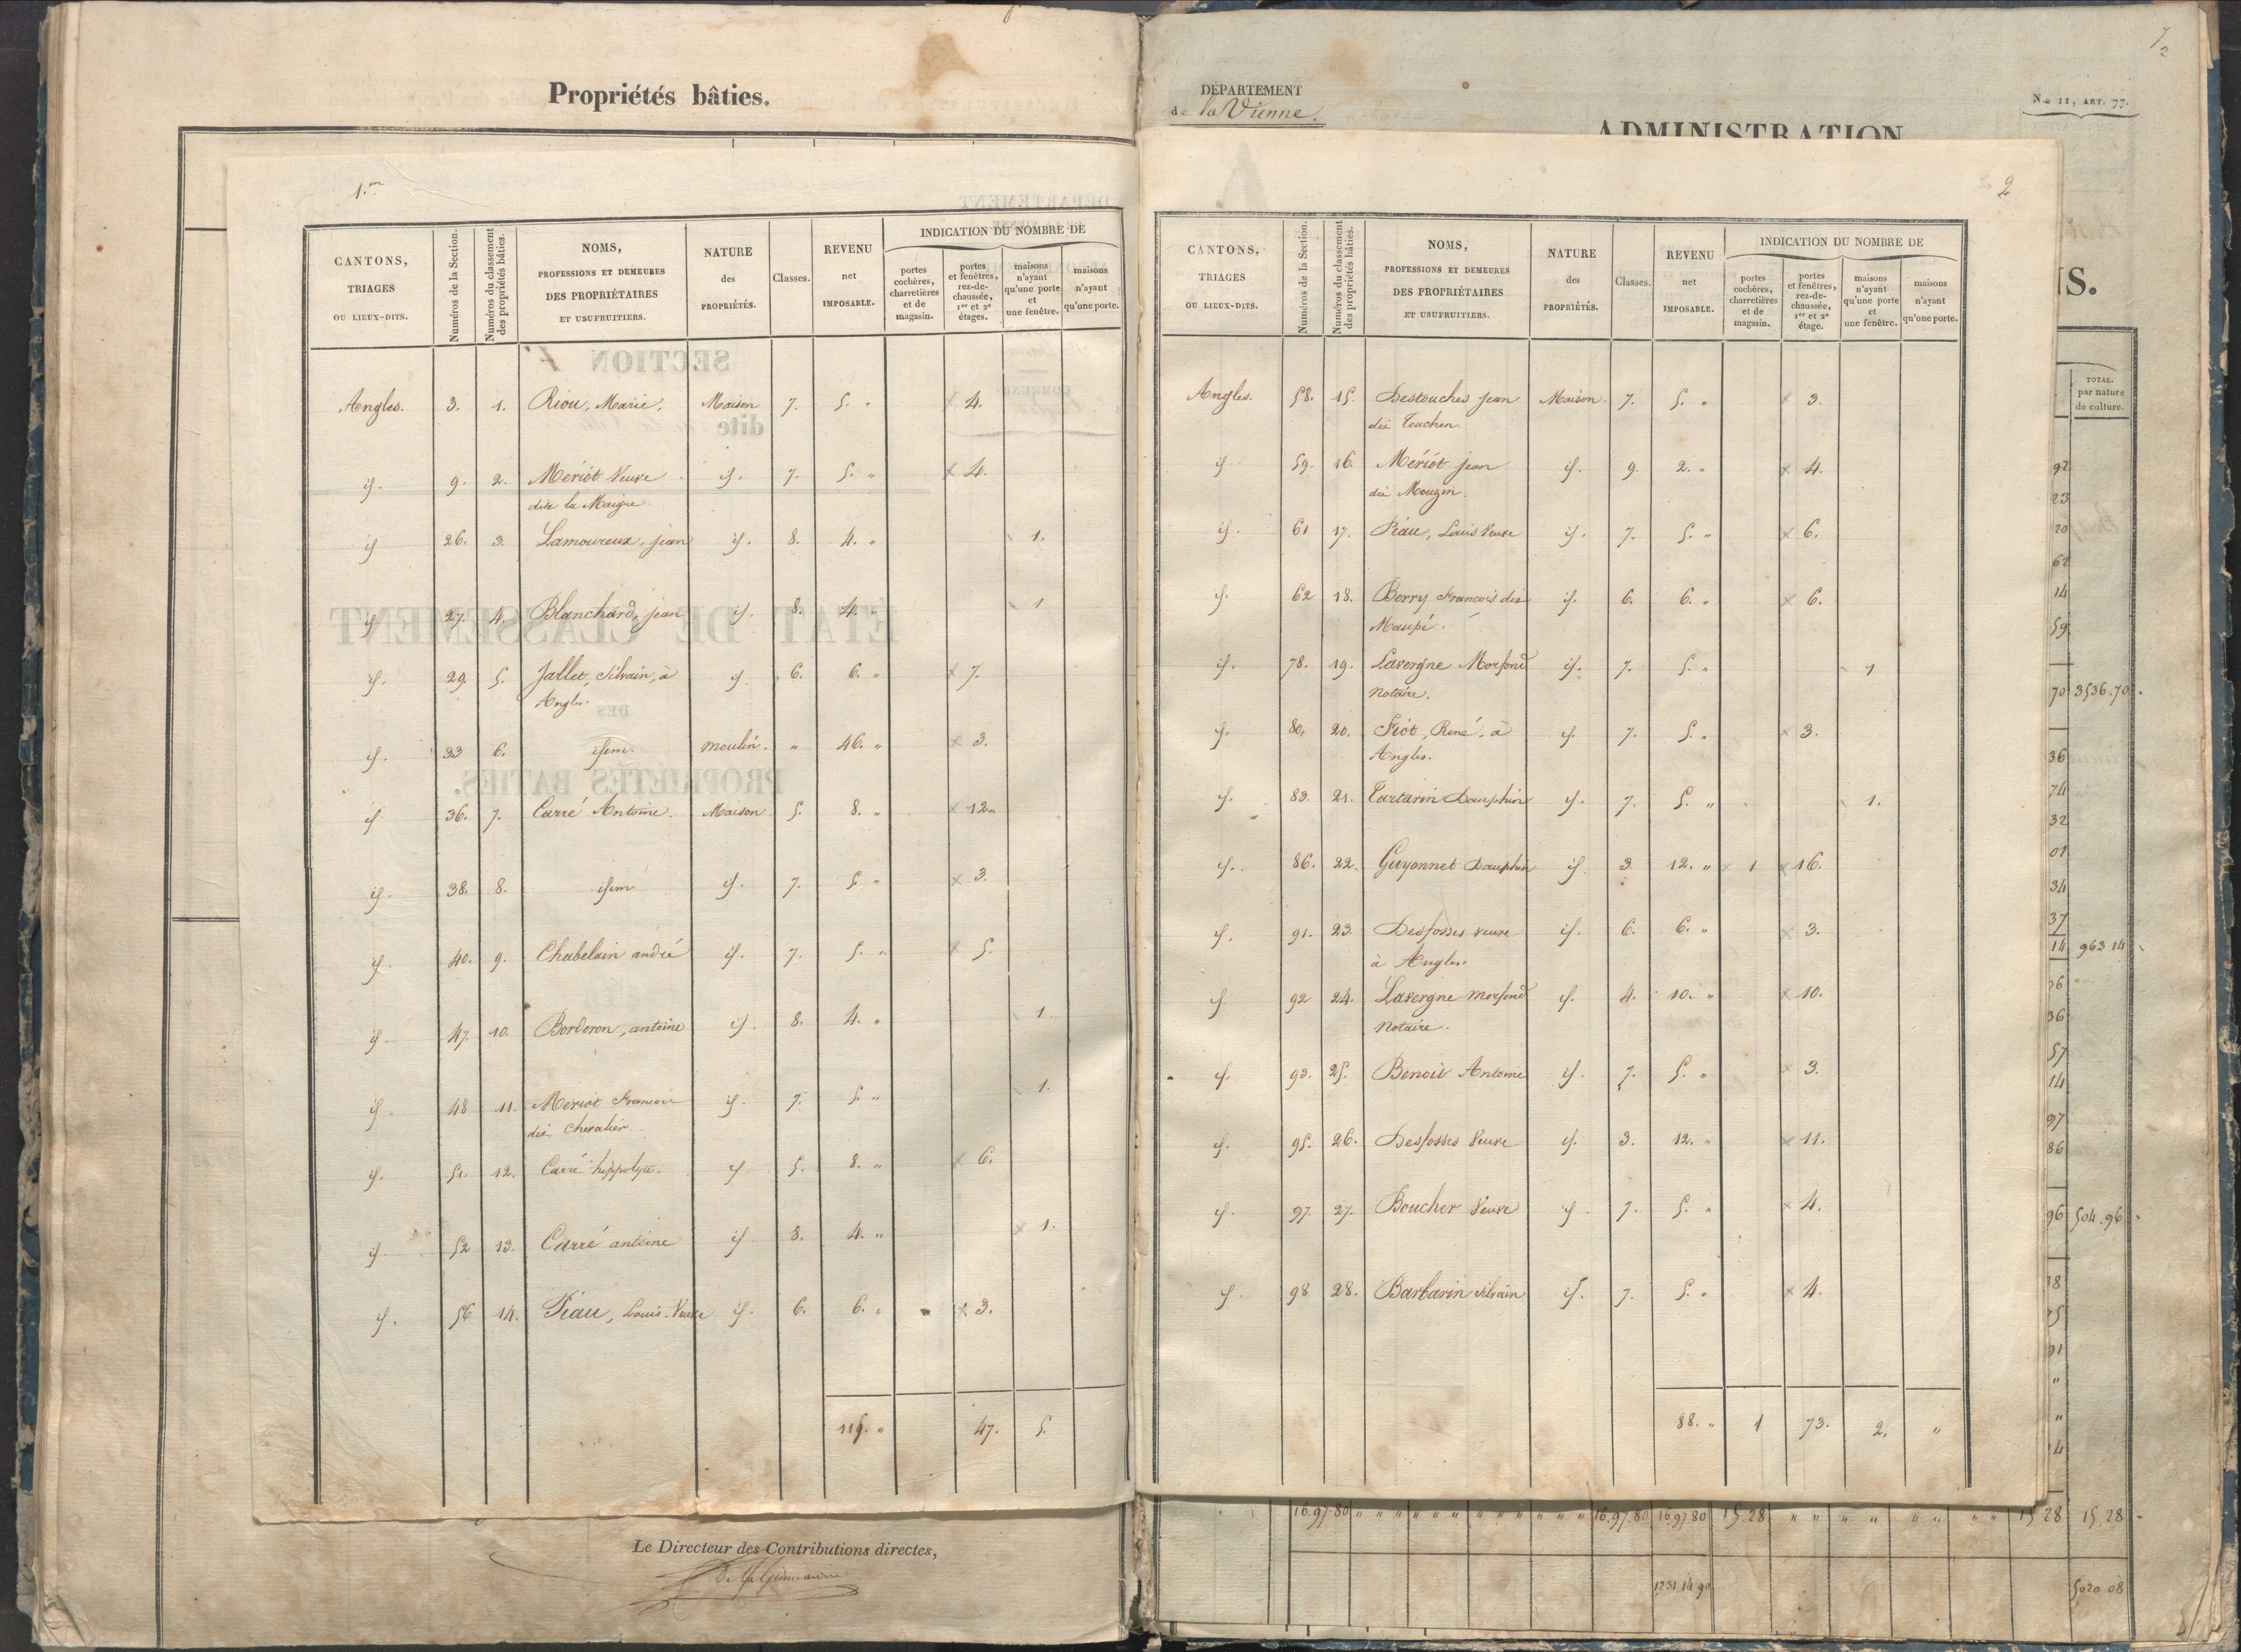 Propriétés bâties.
1.re
CANTONS, TRIAGES OU LIEUX-DITS.
Numéros de la Section.
Numéros du classement des propriétés bâties.
NOMS, PROFESSIONS ET DEMEURES DES PROPRIÉTAIRES ET USUFRUITIERS.
NATURE des PROPRIÉTÉS.
Classes.
REVENU net IMPOSABLE.
INDICATION DU NOMBRE DE
portes cochères, charretières et de magasin.
portes et fenêtres, rez-de-chaussée, 1er et 2e étages.
maisons n'ayant qu'une porte et une fenêtre.
maisons n'ayant qu'une porte.
Angles. 3. 1. Riou, Marie. Maison 7. 5. " × 4.
id. 9. 2. Mériot Veuve id. 7. 5. " × 4.
dite la Maigre.
id 26. 3. Lamoureux, jean id. 8. 4. " 1.
id 27. 4. Blanchard, jean id. 8. 4. " 1
id. 29. 5. Jallet, Silvain, à id. 6. 6. " × 7.
Angles.
id. 33 6. idem. moulin. " 46. " × 3.
id. 36. 7. Carré Antoine. Maison 5. 8. " × 12.
id. 38. 8. idem id. 7. 5. " × 3.
id. 40. 9. Chabelain andré id. 7. 5. " × 5.
id. 47. 10. Borderon, antoine id. 8. 4. " 1.
id. 48 11. Meriot Francois id. 7. 5. " 1.
dit Chevalier
id. 51. 12. Carré hippolyte. id 5. 8. " × 6.
id. 52 13. Carré antoine id 8. 4. " × 1.
id. 56 14. Piau, Louis Veuve id. 6. 6. " × 3.
115. " 47. 5.
Le Directeur des Contributions directes,
DÉPARTEMENT
de la Vienne.
N.o 11, ART. 77.
ADMINISTRATION
2
CANTONS, TRIAGES OU LIEUX-DITS.
Numéros de la Section.
Numéros du classement des propriétés bâties.
NOMS, PROFESSIONS ET DEMEURES DES PROPRIÉTAIRES ET USUFRUITIERS.
NATURE des PROPRIÉTÉS.
Classes.
REVENU net IMPOSABLE.
INDICATION DU NOMBRE DE
portes cochères, charretières et de magasin.
portes et fenêtres, rez-de-chaussée, 1er et 2e étage.
maisons n'ayant qu'une porte et une fenêtre.
maisons n'ayant qu'une porte.
Angles. 58. 15. Destouches jean Maison. 7. 5. " × 3.
dit Touchon.
id. 59. 16. Mériot jean id. 9. 2. " × 4.
dit Mouzon.
id. 61 17. Piau, Louis Veuve id. 7. 5. " × 6.
id. 62 18. Berry Francois dit id. 6. 6. " × 6.
Maupé.
id. 78. 19. Lavergne Morfond id. 7. 5. " 1
Notaire.
id. 80. 20. Fiot, René, à id. 7. 5. " × 3.
Angles.
id. 83. 21. Tartarin Dauphin id. 7. 5. " 1.
id. 86. 22. Guyonnet Dauphin id. 3. 12. " × 1 × 16.
id. 91. 23. Desfosses veuve id. 6. 6. " × 3.
à Angles.
id. 92 24. Lavergne morfond id. 4. 10. " × 10.
Notaire.
id. 93. 25. Benoit Antoine id. 7. 5. " × 3.
id. 95. 26. Desfosses Veuve id. 3. 12. " × 11.
id. 97. 27. Boucher Veuve id. 7. 5. " × 4.
id. 98 28. Barbarin silvain id. 7. 5. " × 4.
88. " 1 73. 2. "
S.
TOTAL. par nature de culture.
3536.70
963 14
504.96
16.97.80 16.97.80 16.97.80 15.28 15 28 15.28
1231.14 90 5020 08